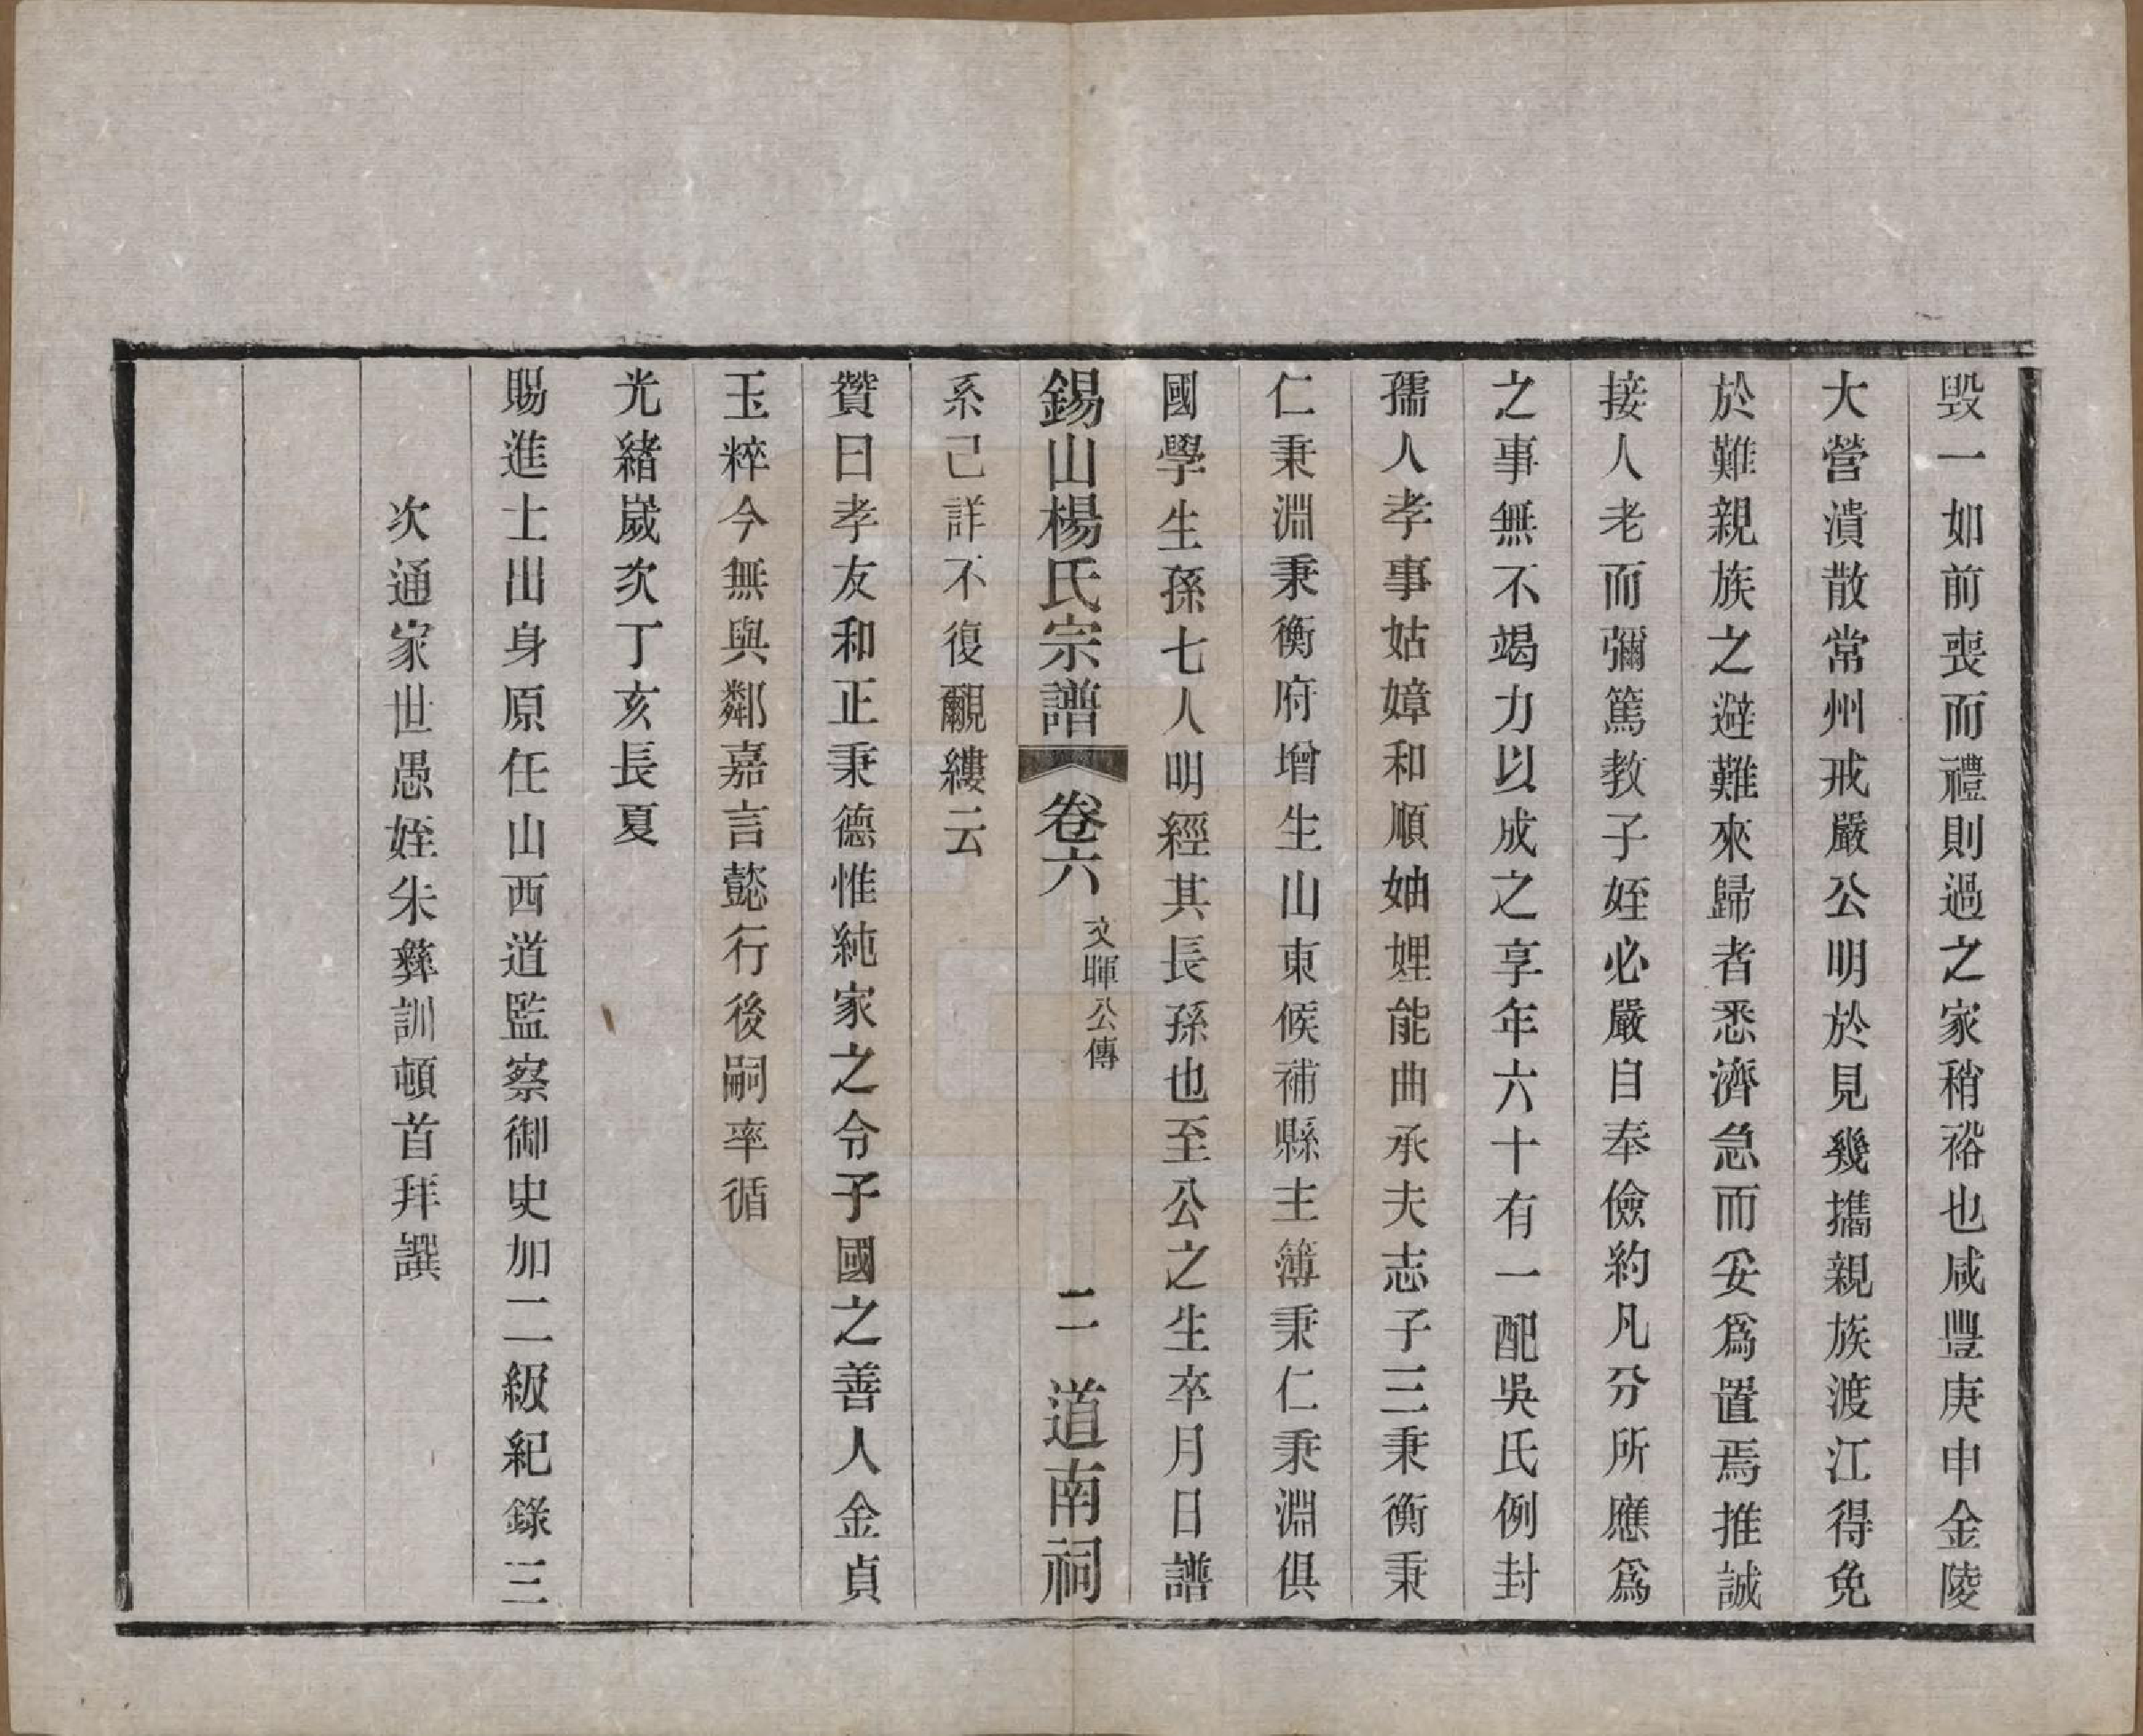 毀一如前喪而禮則過之家稍裕也咸豐庚申金陵
大營潰散常州戒嚴公明於見幾攜親族渡江得免
於難親族之避難來歸者悉濟急而妥爲置焉推誠
接人老而彌篤教子姪必嚴自奉儉約凡分所應爲
之事無不竭力以成之享年六十有一配吳氏例封
孺人孝事姑嫜和順妯娌能曲承夫志子三秉衡秉
仁秉淵秉衡府增生山東候補縣主簿秉仁秉淵俱
國學生孫七人明經其長孫也至公之生卒月日譜
錫山楊氏宗譜 卷六 文暉公傳 二 道南祠
系已詳不復覼縷云
贊曰孝友和正秉德惟純家之令子國之善人金貞
玉粹今無與鄰嘉言懿行後嗣率循
光緒歲次丁亥長夏
賜進士出身原任山西道監察御史加二級紀錄三
次通家世愚姪朱彝訓頓首拜譔